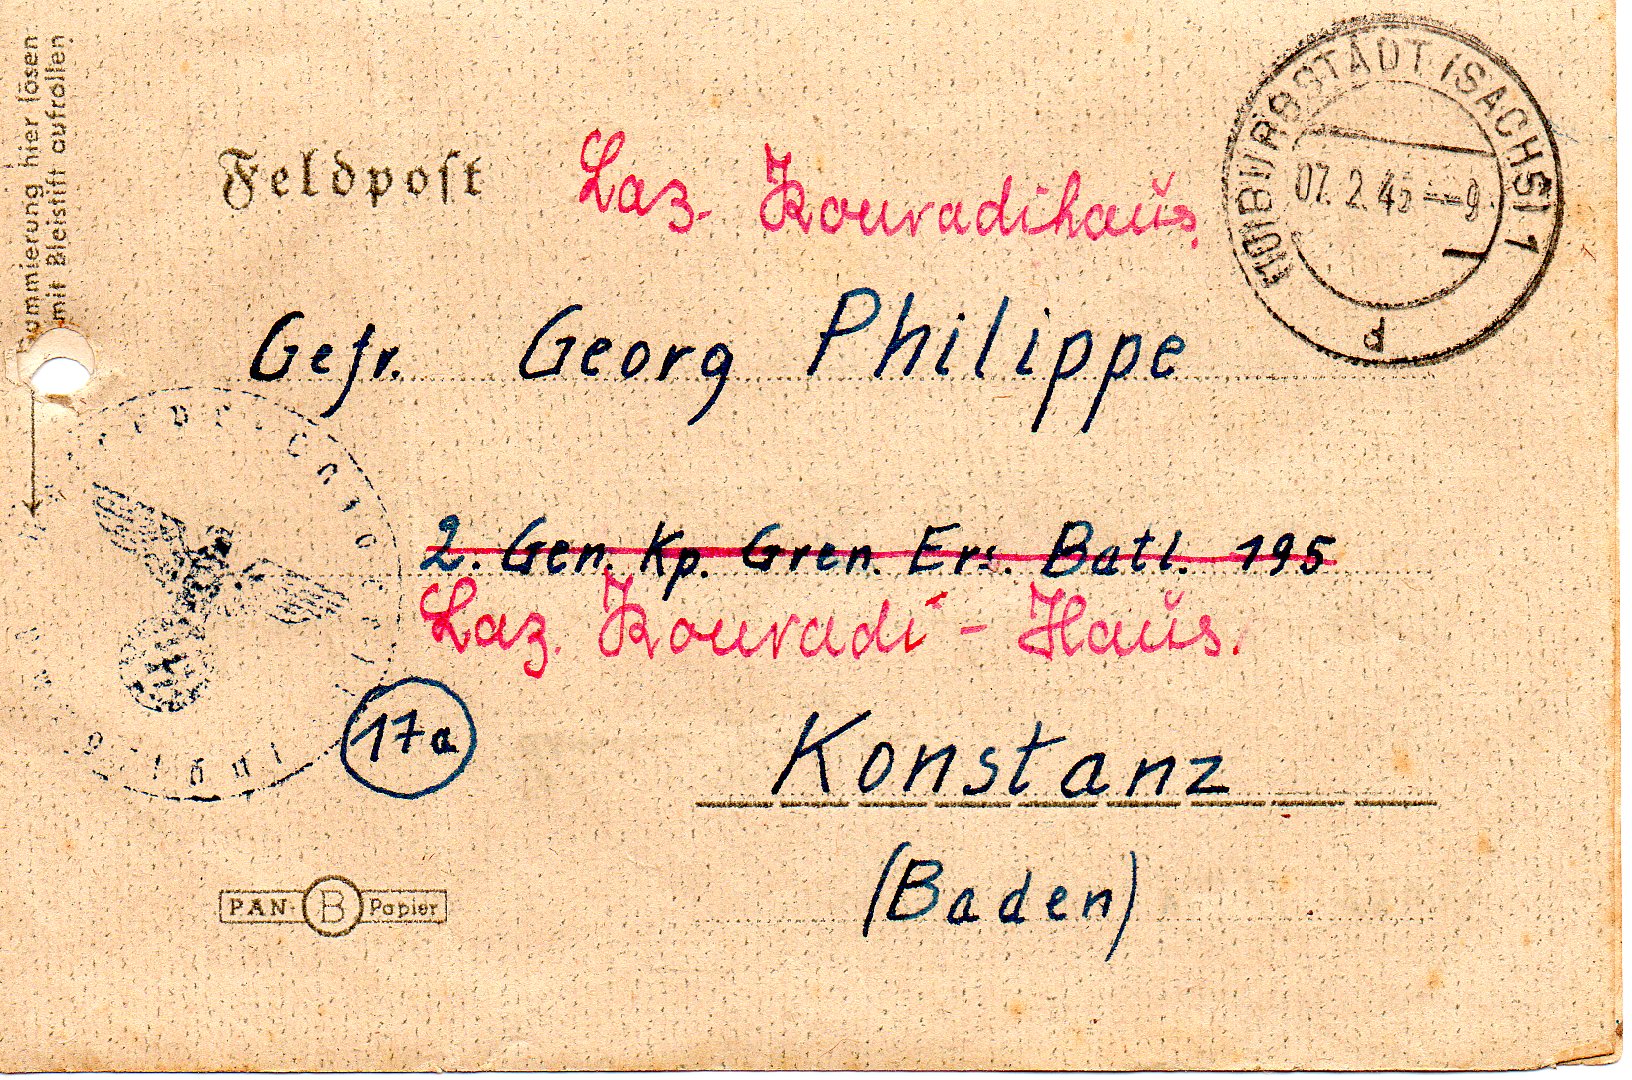 Gummierung hier lösen
mit Bleistift aufrollen
Feldpost
Laz. Konradihaus.
(10) BURGSTÄDT (SACHS) 1
07.2.45 – 9
d
Gefr. Georg Philippe
2. Gen. Kp. Gren. Ers. Batl. 195
Laz. Konradi - Haus.
17a
Konstanz
(Baden)
PAN - B Papier